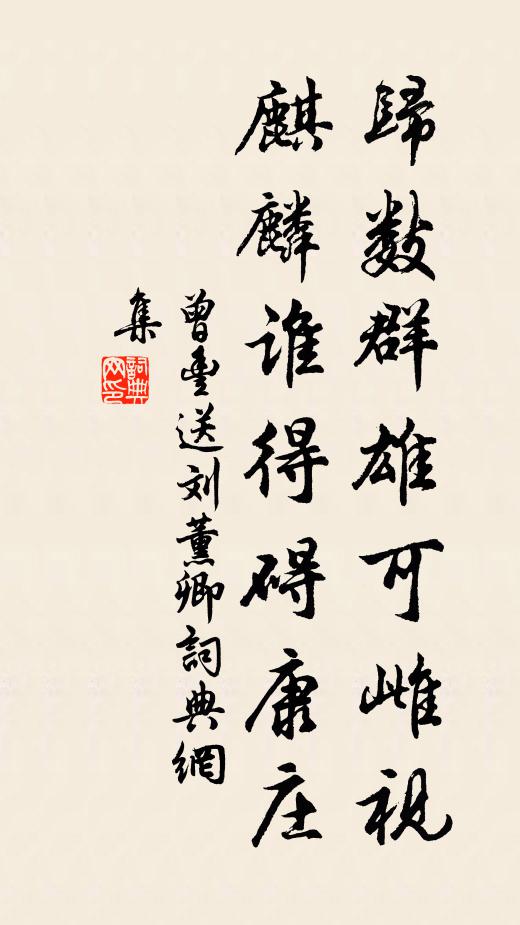 歸數群雄可雌視
麒麟谁得碍康庄
曾豊送刘薰卿詞典網
集
詞典网印